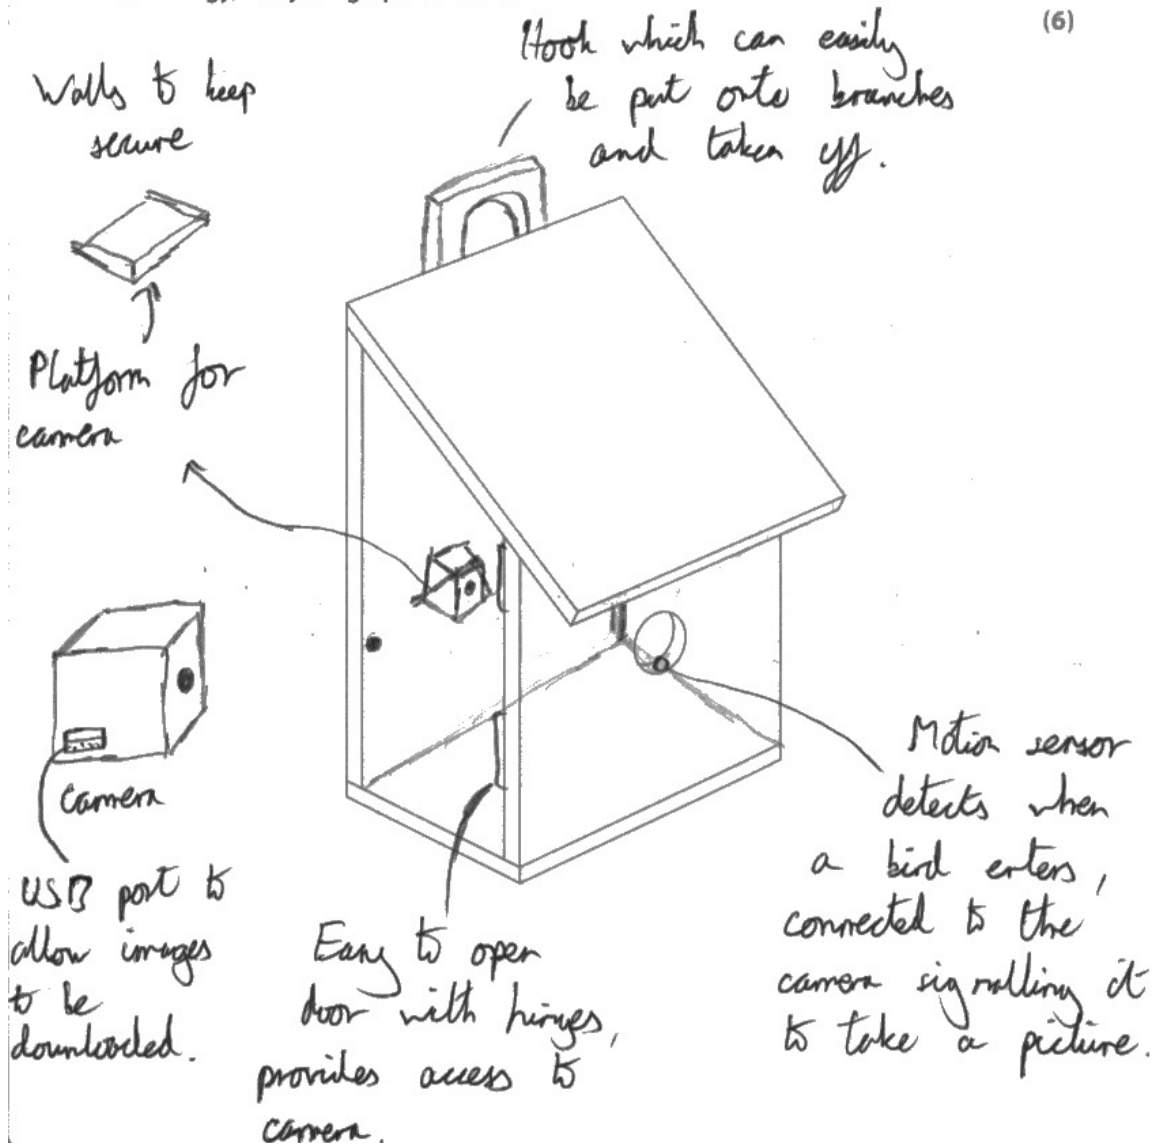 (6)
Hook which can easily
be put onto branches
and taken off.
Walls to keep
secure
Platform for
camera
Camera
USB port to
allow images
to be
downloaded.
Easy to open
door with hinges,
provides access to
camera.
Motion sensor
detects when
a bird enters,
connected to the
camera signalling it
to take a picture.